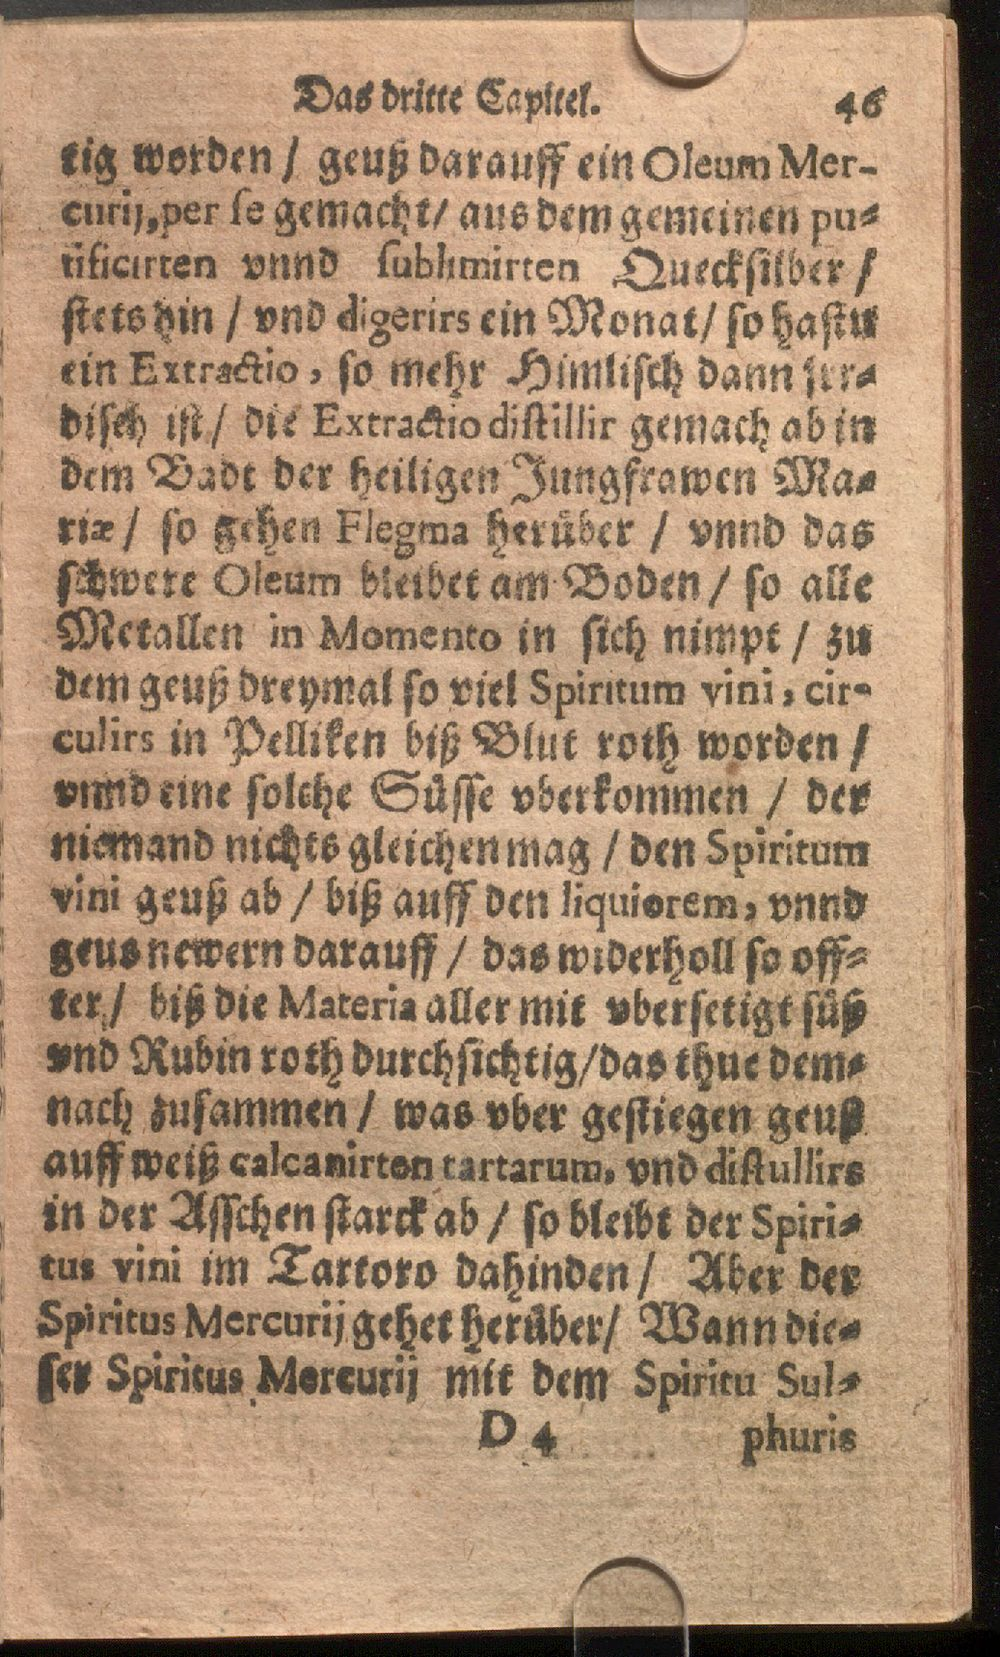 Das dritte Capitel. 46
tig worden / geuß darauff ein Oleum Mer-
curij, per se gemacht / aus dem gemeinen pu-
rificirten vnnd sublimirten Quecksilber /
stets hin / vnd digerirs ein Monat / so hastu
ein Extractio, so mehr Himlisch dann jrr-
disch ist / die Extractio distillir gemach ab in
dem Badt der heiligen Jungfrawen Ma-
riæ / so gehen Flegma herüber / vnnd das
schwere Oleum bleibet am Boden / so alle
Metallen in Momento in sich nimpt / zu
dem geuß dreymal so viel Spiritum vini, cir-
culirs in Pelliken biß Blut roth worden /
vnnd eine solche Süsse vberkommen / der
niemand nichts gleichen mag / den Spiritum
vini geuß ab / biß auff den liquiorem, vnnd
geus newern darauff / das widerholl so off-
ter / biß die Materia aller mit vbersetigt süß
vnd Rubin roth durchsichtig / das thue dem-
nach zusammen / was vber gestiegen geuß
auff weiß calcanirten tartarum, vnd distullirs
in der Asschen starck ab / so bleibt der Spiri-
tus vini im Tartoro dahinden / Aber der
Spiritus Mercurij gehet herüber / Wann die-
ser Spiritus Mercurij mit dem Spiritu Sul-
D 4 phuris